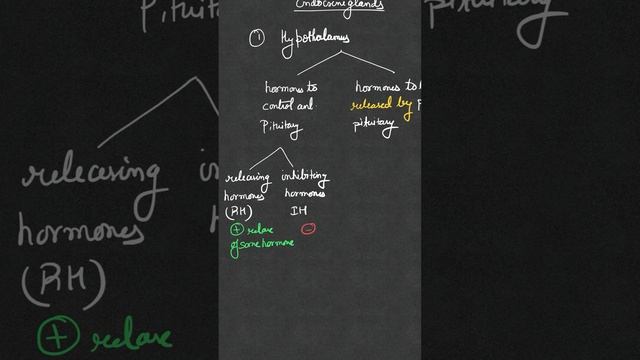 Endocrine glands
① Hypothalamus
hormones to
control ant
Pituitary
hormones to
released by P
pituitary
releasing
hormones
(RH)
inhibiting
hormones
IH
⊕ relase
of some hormone
⊖
Pituitary
releasing
hormones
(RH)
⊕ relase
pituitary